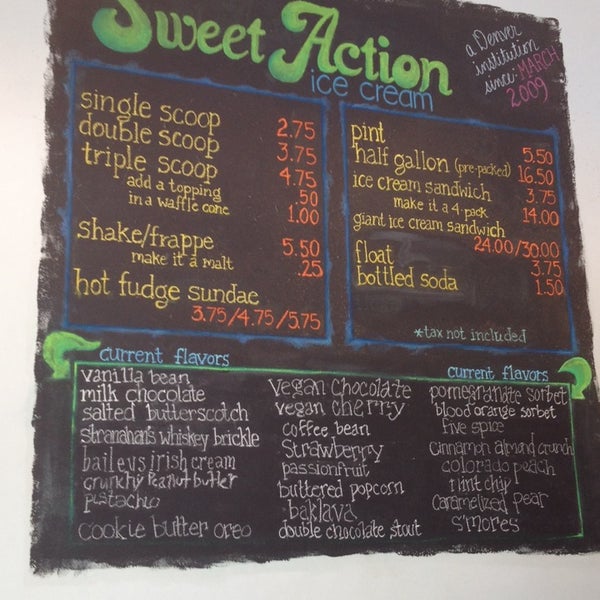 Sweet Action
ice cream
a Denver
institution
since: MARCH
2009
single scoop 2.75
double scoop 3.75
triple scoop 4.75
add a topping .50
in a waffle cone 1.00
shake/frappe 5.50
make it a malt .25
hot fudge sundae
3.75/4.75/5.75
pint 5.50
half gallon (pre-packed) 16.50
ice cream sandwich 3.75
make it a 4 pack 14.00
giant ice cream sandwich
24.00/30.00
float 3.75
bottled soda 1.50
*tax not included
current flavors
vanilla bean
milk chocolate
salted butterscotch
stranahan's whiskey brickle
baileys irish cream
crunchy peanut butter
pistachio
cookie butter oreo
vegan chocolate
vegan cherry
coffee bean
strawberry
passionfruit
buttered popcorn
baklava
double chocolate stout
current flavors
pomegranate sorbet
blood orange sorbet
five spice
cinnamon almond crunch
colorado peach
mint chip
caramelized pear
s'mores